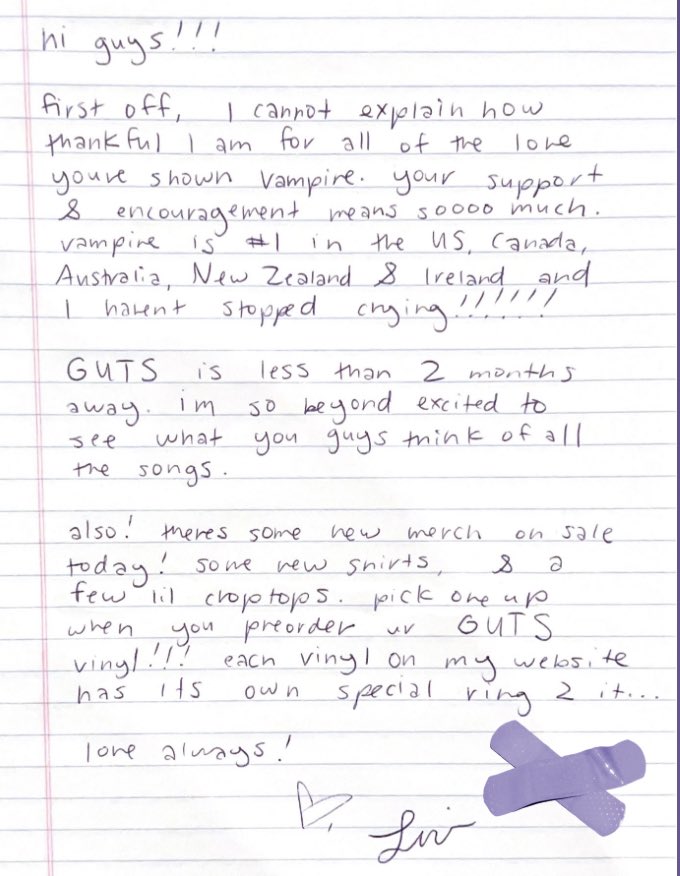 hi guys!!!
first off, I cannot explain how
thankful I am for all of the love
youve shown vampire. your support
& encouragement means soooo much.
vampire is #1 in the US, Canada,
Australia, New Zealand & Ireland and
I havent stopped crying!!!!!!!
GUTS is less than 2 months
away. im so beyond excited to
see what you guys think of all
the songs.
also! theres some new merch on sale
today! some new shirts, & a
few lil croptops. pick one up
when you preorder ur GUTS
vinyl!!! each vinyl on my website
has its own special ring 2 it...
love always!
Liv